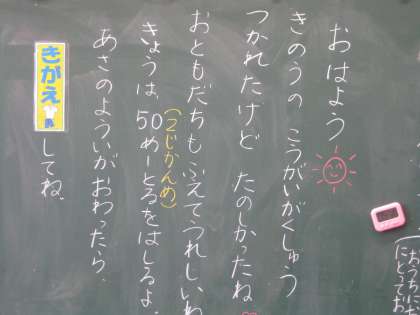 おはよう
きのうの こうがいがくしゅう
つかれたけど たのしかったね
おともだちもふえてうれしいね
(2じかんめ)
きょうは、50めーとるをはしるよ。
あさのよういがおわったら、
きがえ してね。